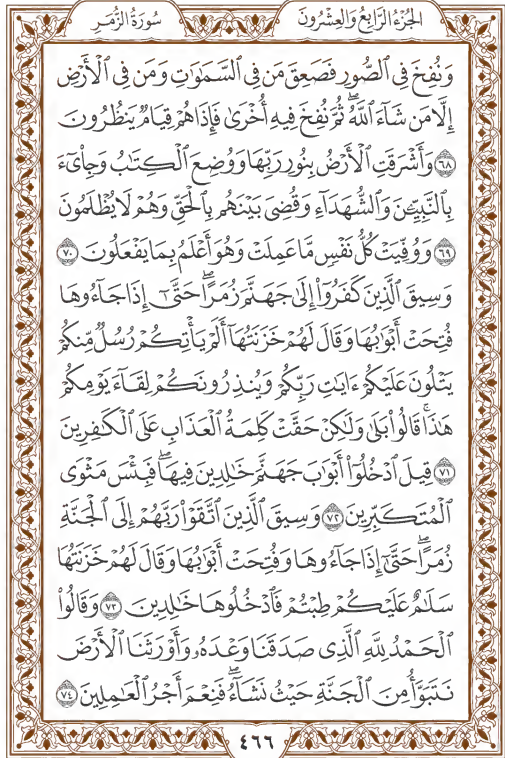 الجُزْءُ الرَّابِعُ وَالعِشْرُونَ سُورَةُ الزُّمَرِ
وَنُفِخَ فِي ٱلصُّورِ فَصَعِقَ مَن فِي ٱلسَّمَٰوَٰتِ وَمَن فِي ٱلْأَرْضِ
إِلَّا مَن شَآءَ ٱللَّهُۖ ثُمَّ نُفِخَ فِيهِ أُخْرَىٰ فَإِذَا هُمْ قِيَامٌ يَنظُرُونَ
٦٨ وَأَشْرَقَتِ ٱلْأَرْضُ بِنُورِ رَبِّهَا وَوُضِعَ ٱلْكِتَٰبُ وَجِا۟ىٓءَ
بِٱلنَّبِيِّـۧنَ وَٱلشُّهَدَآءِ وَقُضِيَ بَيْنَهُم بِٱلْحَقِّ وَهُمْ لَا يُظْلَمُونَ
٦٩ وَوُفِّيَتْ كُلُّ نَفْسٍ مَّا عَمِلَتْ وَهُوَ أَعْلَمُ بِمَا يَفْعَلُونَ ٧٠
وَسِيقَ ٱلَّذِينَ كَفَرُوٓا۟ إِلَىٰ جَهَنَّمَ زُمَرًاۖ حَتَّىٰٓ إِذَا جَآءُوهَا
فُتِحَتْ أَبْوَٰبُهَا وَقَالَ لَهُمْ خَزَنَتُهَآ أَلَمْ يَأْتِكُمْ رُسُلٌ مِّنكُمْ
يَتْلُونَ عَلَيْكُمْ ءَايَٰتِ رَبِّكُمْ وَيُنذِرُونَكُمْ لِقَآءَ يَوْمِكُمْ
هَٰذَاۚ قَالُوا۟ بَلَىٰ وَلَٰكِنْ حَقَّتْ كَلِمَةُ ٱلْعَذَابِ عَلَى ٱلْكَٰفِرِينَ
٧١ قِيلَ ٱدْخُلُوٓا۟ أَبْوَٰبَ جَهَنَّمَ خَٰلِدِينَ فِيهَاۖ فَبِئْسَ مَثْوَى
ٱلْمُتَكَبِّرِينَ ٧٢ وَسِيقَ ٱلَّذِينَ ٱتَّقَوْا۟ رَبَّهُمْ إِلَى ٱلْجَنَّةِ
زُمَرًاۖ حَتَّىٰٓ إِذَا جَآءُوهَا وَفُتِحَتْ أَبْوَٰبُهَا وَقَالَ لَهُمْ خَزَنَتُهَا
سَلَٰمٌ عَلَيْكُمْ طِبْتُمْ فَٱدْخُلُوهَا خَٰلِدِينَ ٧٣ وَقَالُوا۟
ٱلْحَمْدُ لِلَّهِ ٱلَّذِي صَدَقَنَا وَعْدَهُۥ وَأَوْرَثَنَا ٱلْأَرْضَ
نَتَبَوَّأُ مِنَ ٱلْجَنَّةِ حَيْثُ نَشَآءُۖ فَنِعْمَ أَجْرُ ٱلْعَٰمِلِينَ ٧٤
٤٦٦